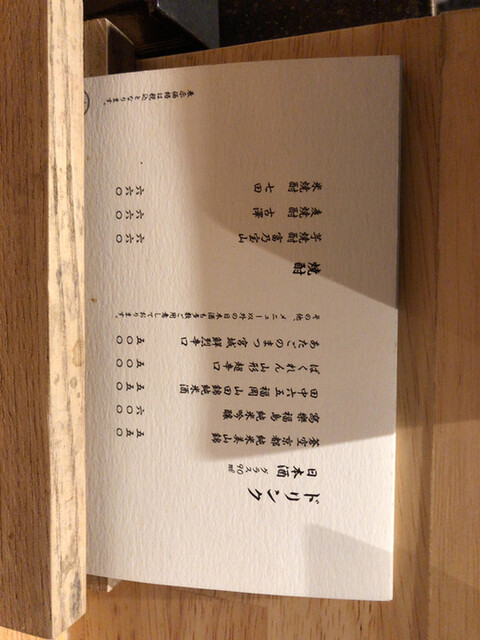 ドリンク
日本酒 グラス 90㎖
蒼空 京都 純米 美山錦 五五〇
寫樂 福島 純米吟醸 六〇〇
田中六五 福岡 山田錦 純米酒 五五〇
ばくれん 山形 超辛口 五〇〇
あたごのまつ 宮城 鮮烈辛口 五五〇
その他、メニュー以外の日本酒も多数ご用意しております。
焼酎
芋焼酎 富乃宝山 六六〇
麦焼酎 古澤 六六〇
米焼酎 七田 六六〇
表示価格は税込となります。